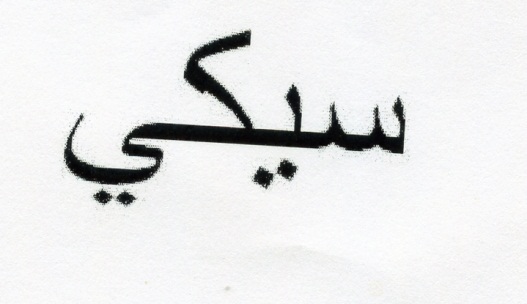 سيكي